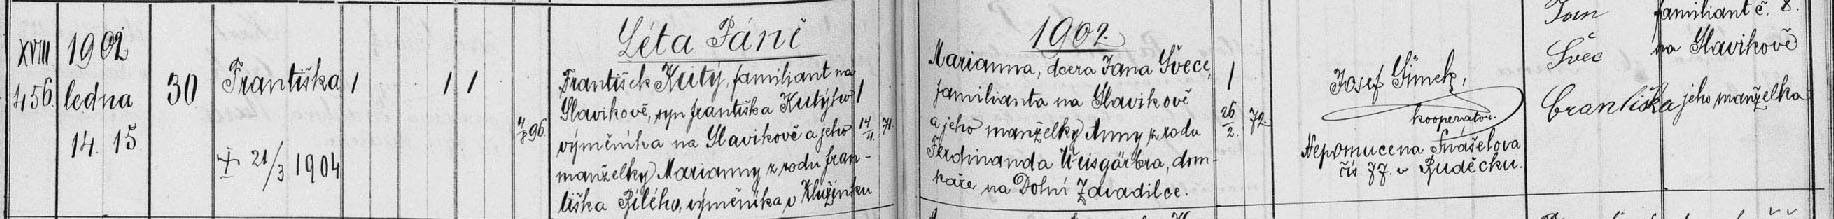 XVIII
456.
1902
ledna
14. 15
+ 21/3 1904
30
Františka
1
1 1
4/2 96
Léta Páně
František Kutý, familiant na
Slavíkově, syn Františka Kutýho
výměníka na Slavíkově a jeho
manželky Marianny z rodu Fran-
tiška Bílého, výměníka v Klužínku
1
14/11. 71.
1902.
Marianna, dcera Jana Švece,
familianta na Slavíkově
a jeho manželky Anny z rodu
Ferdinanda Weisgärbra, dom-
káře na Dolní Zavadilce.
1
26/2. 72.
Josef Šimek,
kooperator.
Nepomucena
čís 77 v Buděcku.
Jan familiant č. 8.
Švec na Slavíkově
Františka jeho manželka